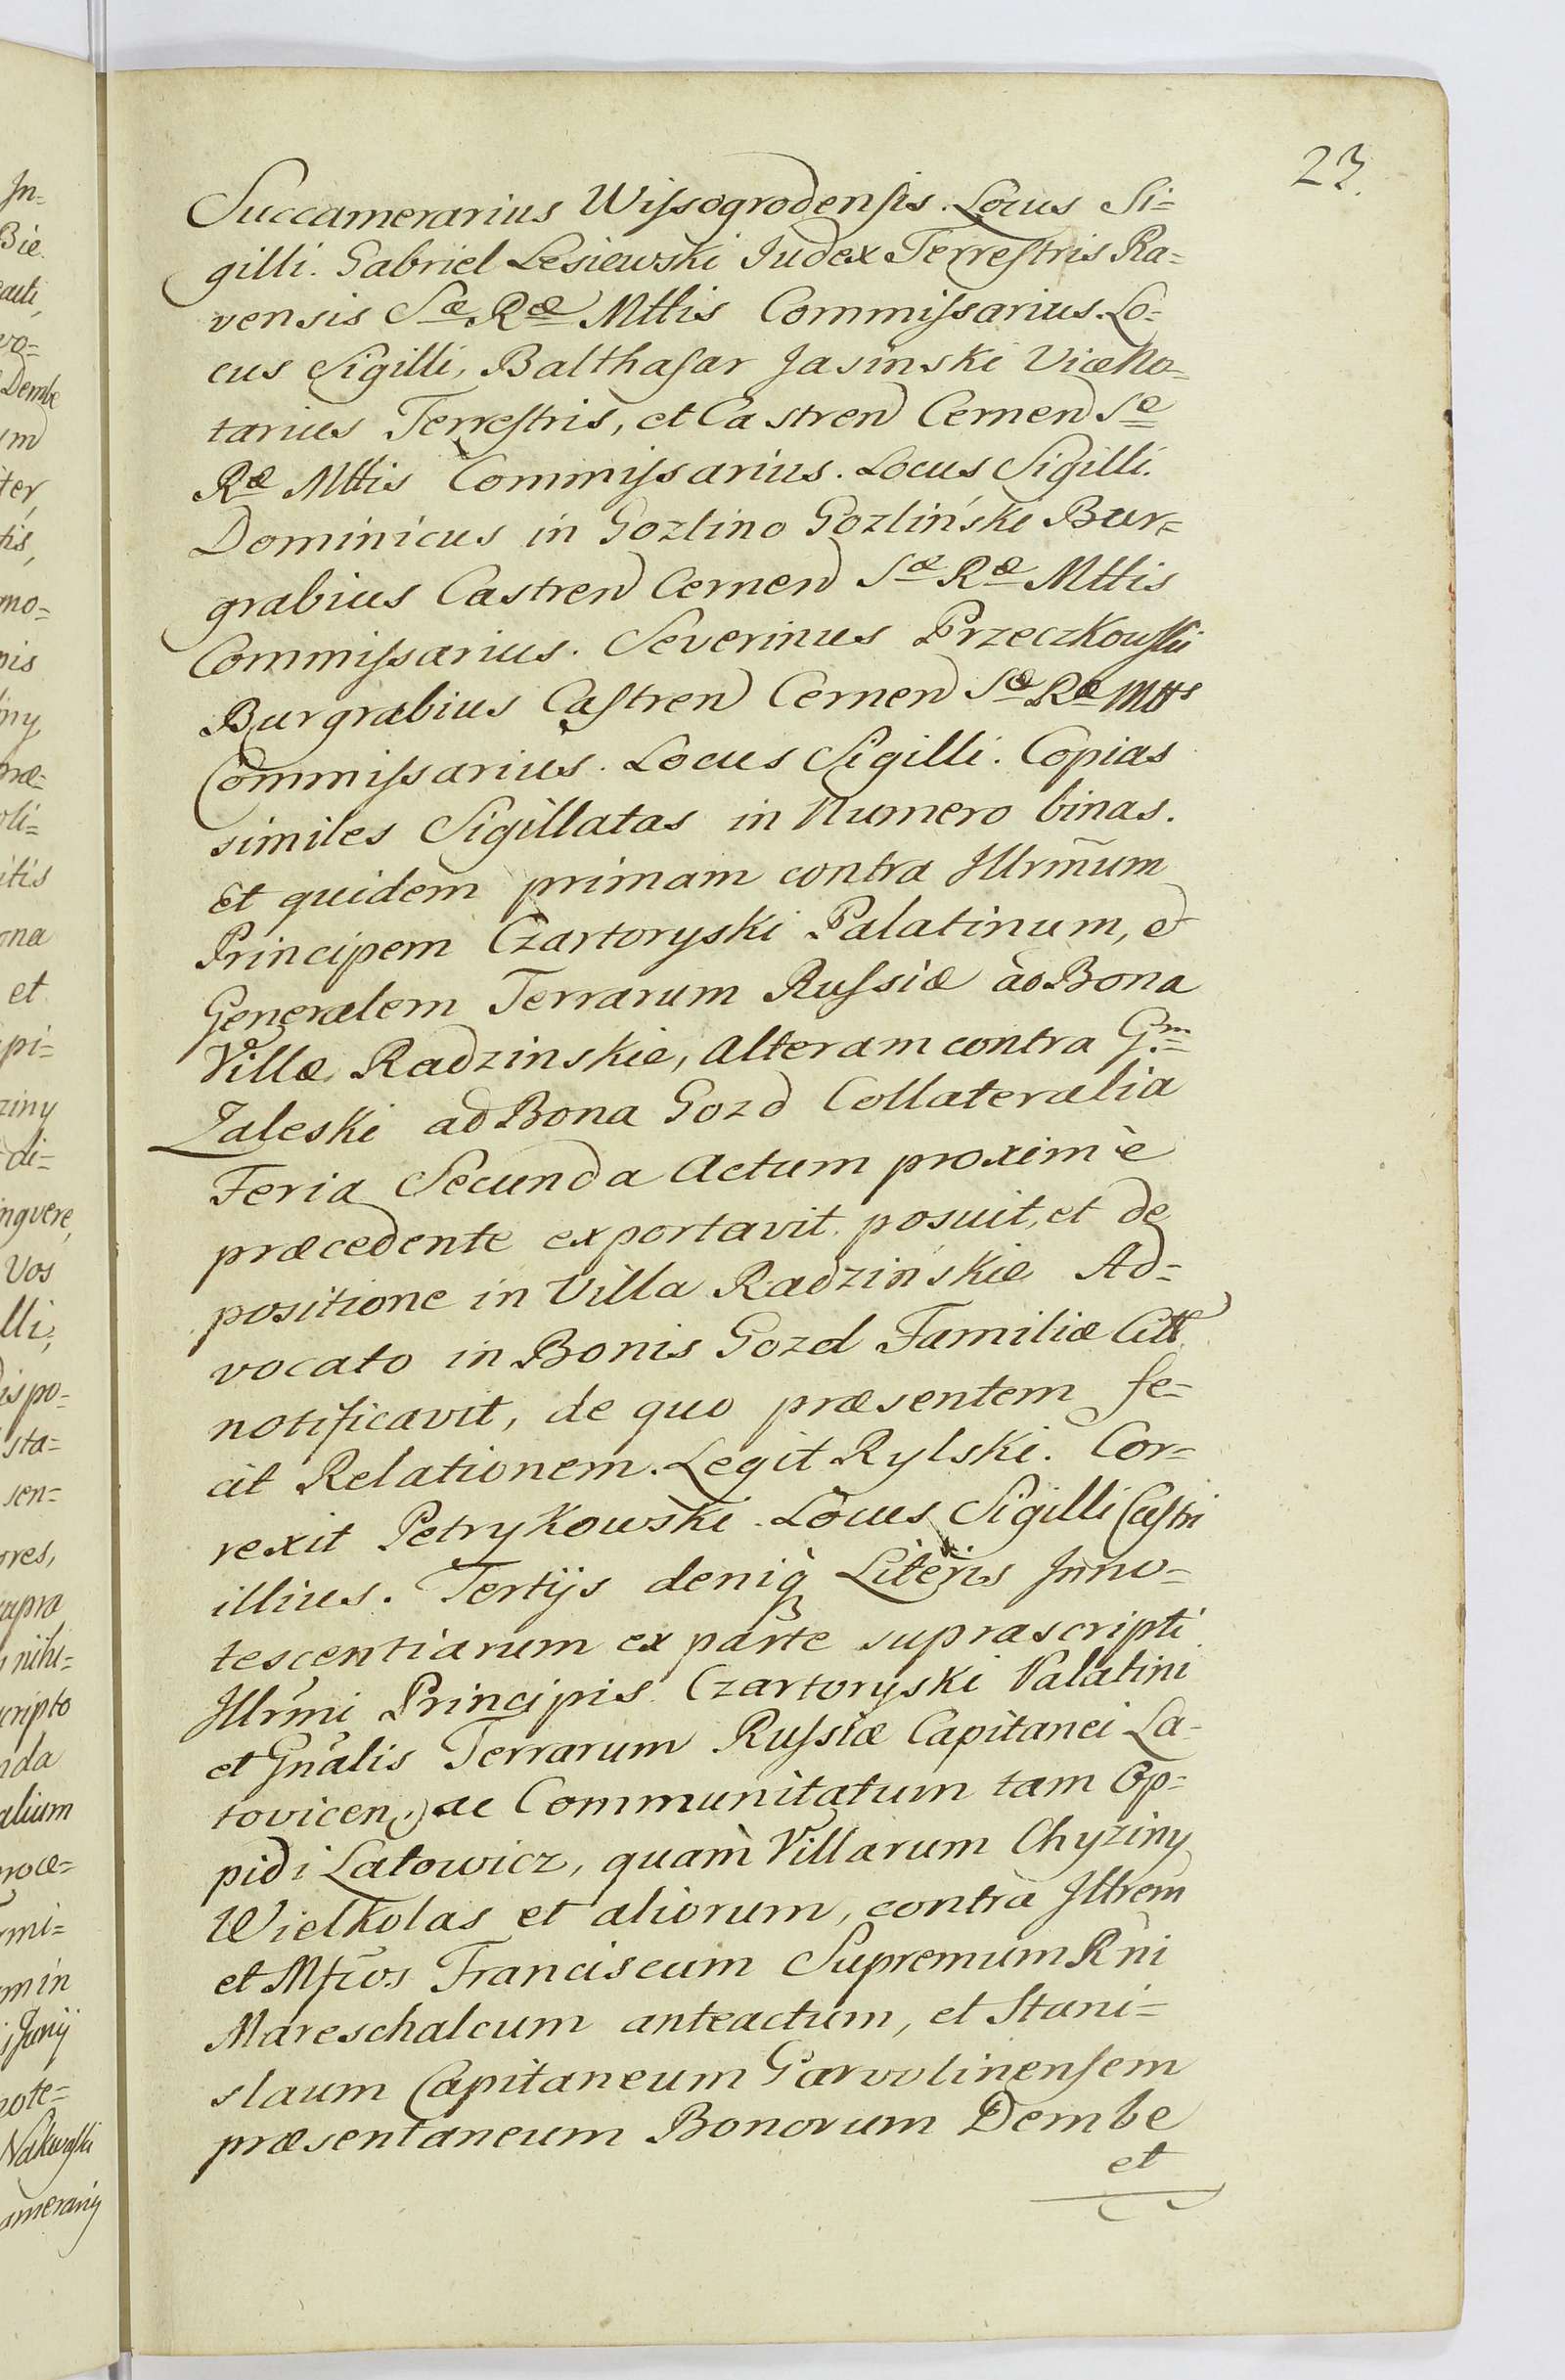 23.
Succamerarius Wissogrodensis. Locus Si=
gilli. Gabriel Lesiewski Iudex Terrestris Ra=
vensis Sæ Ræ Mttis Commissarius. Lo=
cus Sigilli, Balthasar Jasinski ViceNo=
tarius Terrestris, et Castren Cernen Sæ
Ræ Mttis Commissarius. Locus Sigilli.
Dominicus in Gozlino Gozliński Bur=
grabius Castren Cernen Sæ Ræ Mttis
Commissarius. Severinus Przeczkowski
Burgrabius Castren Cernen Sæ Ræ Mtts
Commissarius. Locus Sigilli. Copias
similes Sigillatas in Numero binas.
Et quidem primam contra Illrm̃um
Principem Czartoryski Palatinum, et
Generalem Terrarum Russiæ ad Bona
Villæ Radzinskie, Alteram contra Gm
Zaleski ad Bona Gozd Collateralia
Feria Secunda Actum proximè
præcedente exportavit posuit, et de
positione in Villa Radzińskie Ad=
vocato in Bonis Gozd Familiæ Citt
notificavit, de quo præsentem fe=
cit Relationem. Legit Rylski. Cor=
rexit Petrykowski. Locus Sigilli Castri
illius. Tertijs deniq Literis Inno=
tescentiarum ex parte suprascripti
Illrm̃i Principis Czartoryski Palatini
et Gnãlis Terrarum Russiæ Capitanei La=
tovicen, ac Communitatum tam Op=
pidi Latowicz, quam Villarum Chyziny
Wielkolas et aliorum, contra Illrem
et Mfcos Franciscum Supremum Rñi
Mareschalcum anteactum, et Stani=
slaum Capitaneum Garvolinensem
præsentaneum Bonorum Dembe
et
In=
Bie.
vo=
Dembe
ter,
tis,
mo=
oli=
itis
ona
et
pi=
ziny
di=
nguere,
Vos
lli,
ispo=
sta=
sen=
ores,
supra
nihi=
cripto
nda
alium
roce=
mi=
m in
Junij
note=
Nakwaski
amerarij